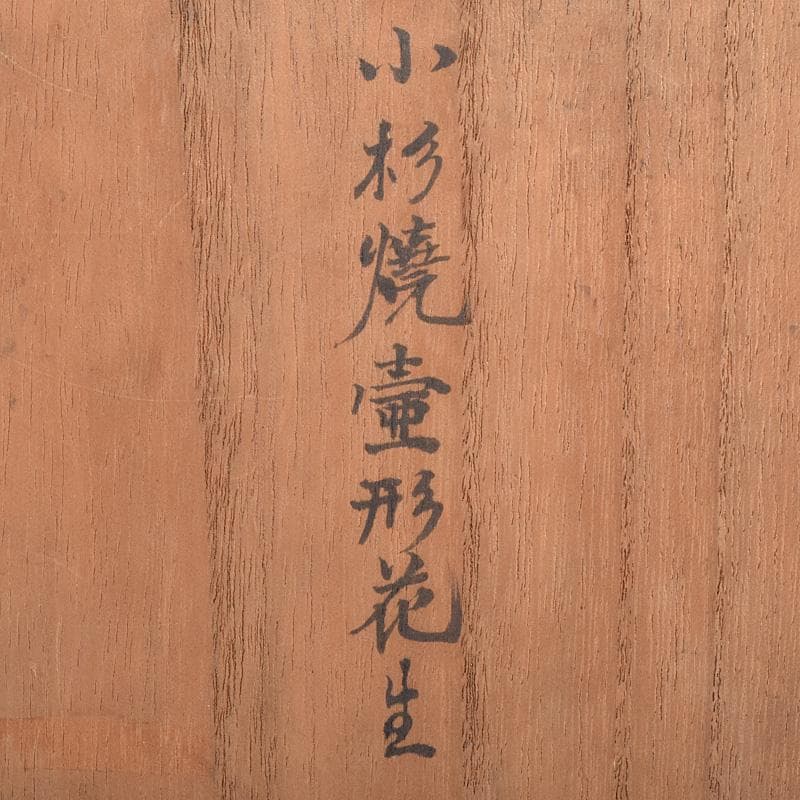 小杉燒壷形花生